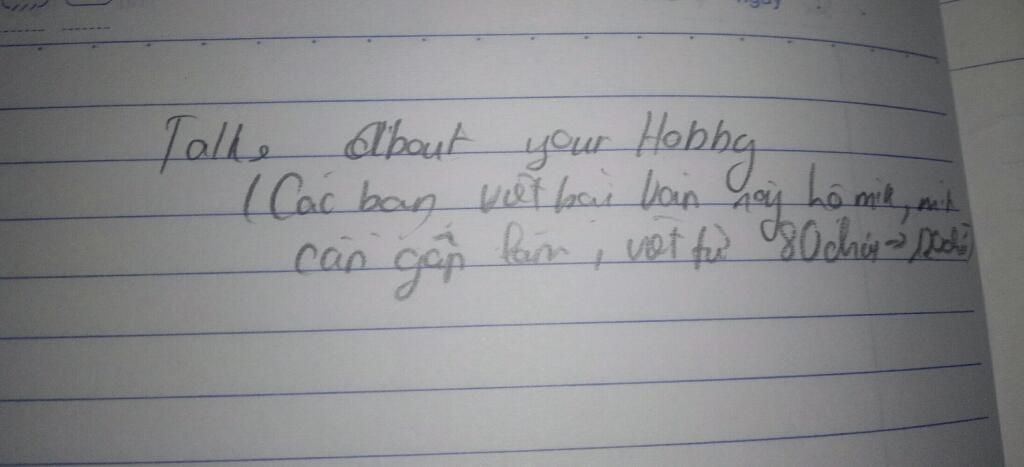 ngày
Talk About your Hobby
(Các bạn viết bài văn này hộ mik, mik
cần gấp lắm, viết từ 80 chữ → 100 chữ)